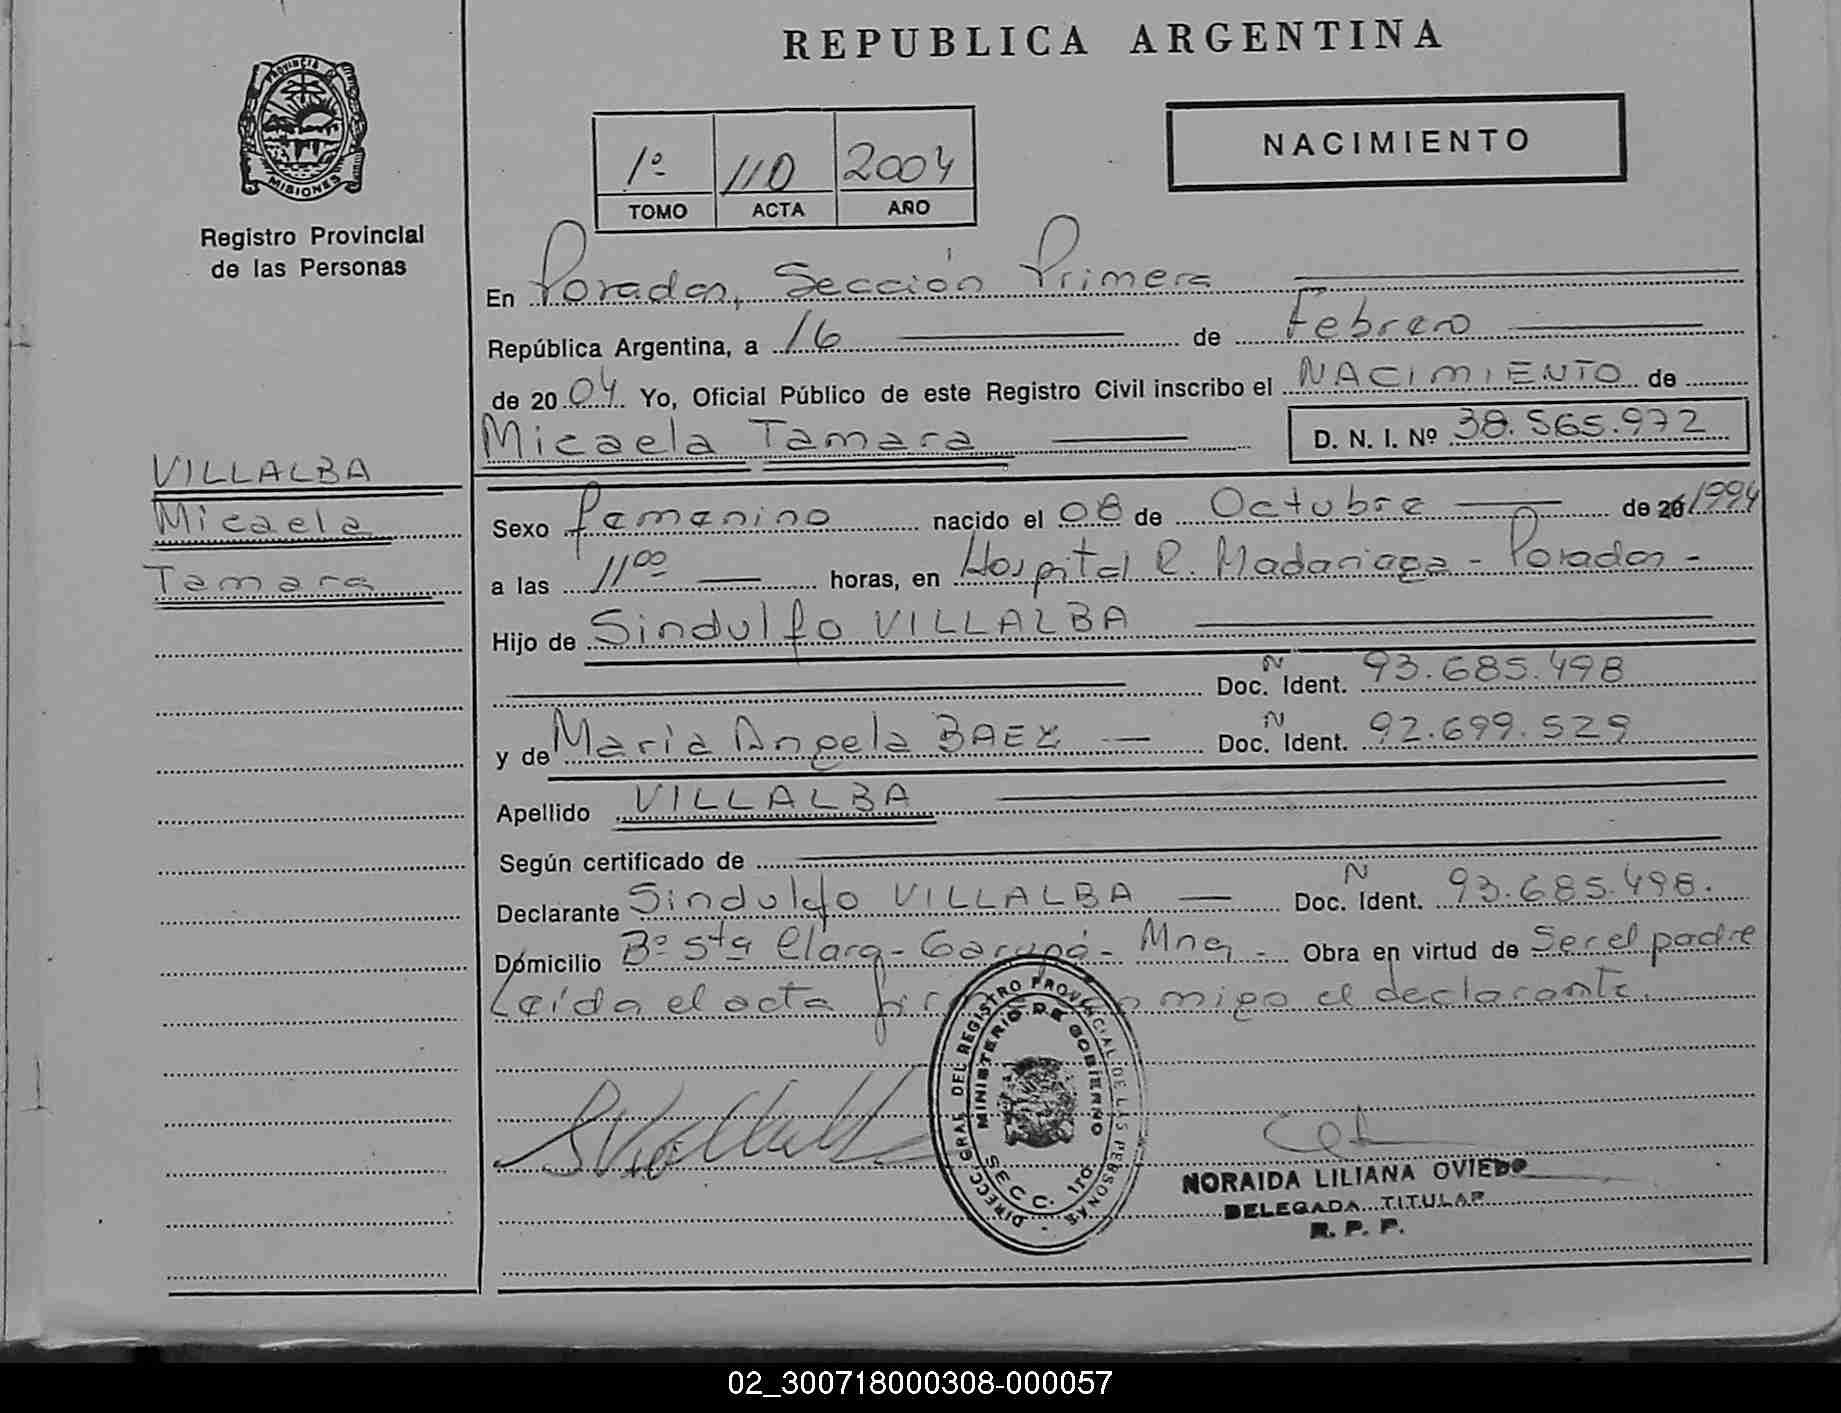 REPUBLICA ARGENTINA
PROVINCIA DE
MISIONES
Registro Provincial
de las Personas
1º 110 2004
TOMO ACTA AÑO
NACIMIENTO
En Posadas, Sección Primera
República Argentina, a 16 de Febrero
de 2004 Yo, Oficial Público de este Registro Civil inscribo el NACIMIENTO de
Micaela Tamara D. N. I. Nº 38.565.972
VILLALBA
Micaela
Tamara
Sexo femenino nacido el 08 de Octubre de 20 1994
a las 11⁰⁰ horas, en Hospital R. Madariaga - Posadas -
Hijo de Sindulfo VILLALBA
Doc. N Ident. 93.685.498
y de Maria Angela BAEZ Doc. N Ident. 92.699.529
Apellido VILLALBA
Según certificado de
Declarante Sindulfo VILLALBA Doc. N Ident. 93.685.498.
Domicilio Bº Sta Clara - Garupá - Mnes - Obra en virtud de Ser el padre
Leída el acta firma conmigo el declarante.
DIRECC. GRAL. DEL REGISTRO PROVINCIAL DE LAS PERSONAS
MINISTERIO DE GOBIERNO
SECC. 1ra.
NORAIDA LILIANA OVIEDO
DELEGADA TITULAR
R. P. P.
02_300718000308-000057